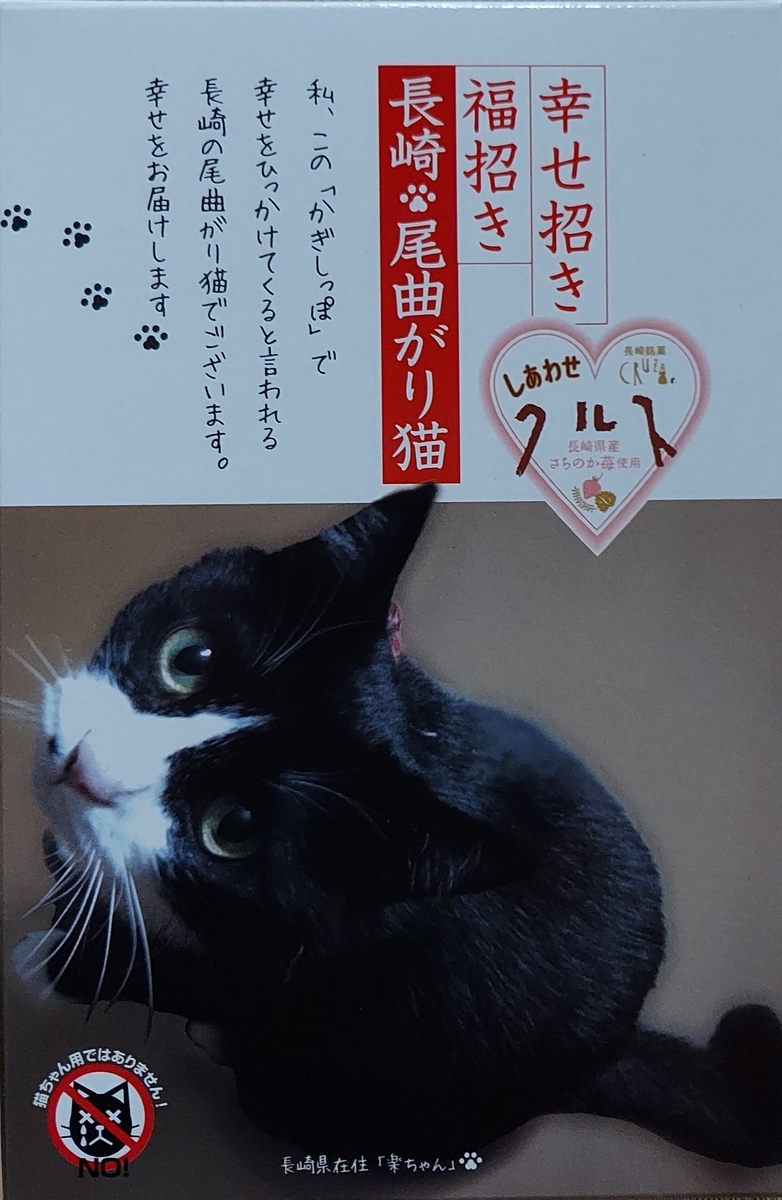 幸せ招き
福招き
長崎尾曲がり猫
私、この「かぎしっぽ」で
幸せをひっかけてくると言われる
長崎の尾曲がり猫でございます。
幸せをお届けします
長崎銘菓
CRUZ
しあわせ
クルス
長崎県産
さちのか苺使用
猫ちゃん用ではありません!
NO!
長崎県在住「楽ちゃん」